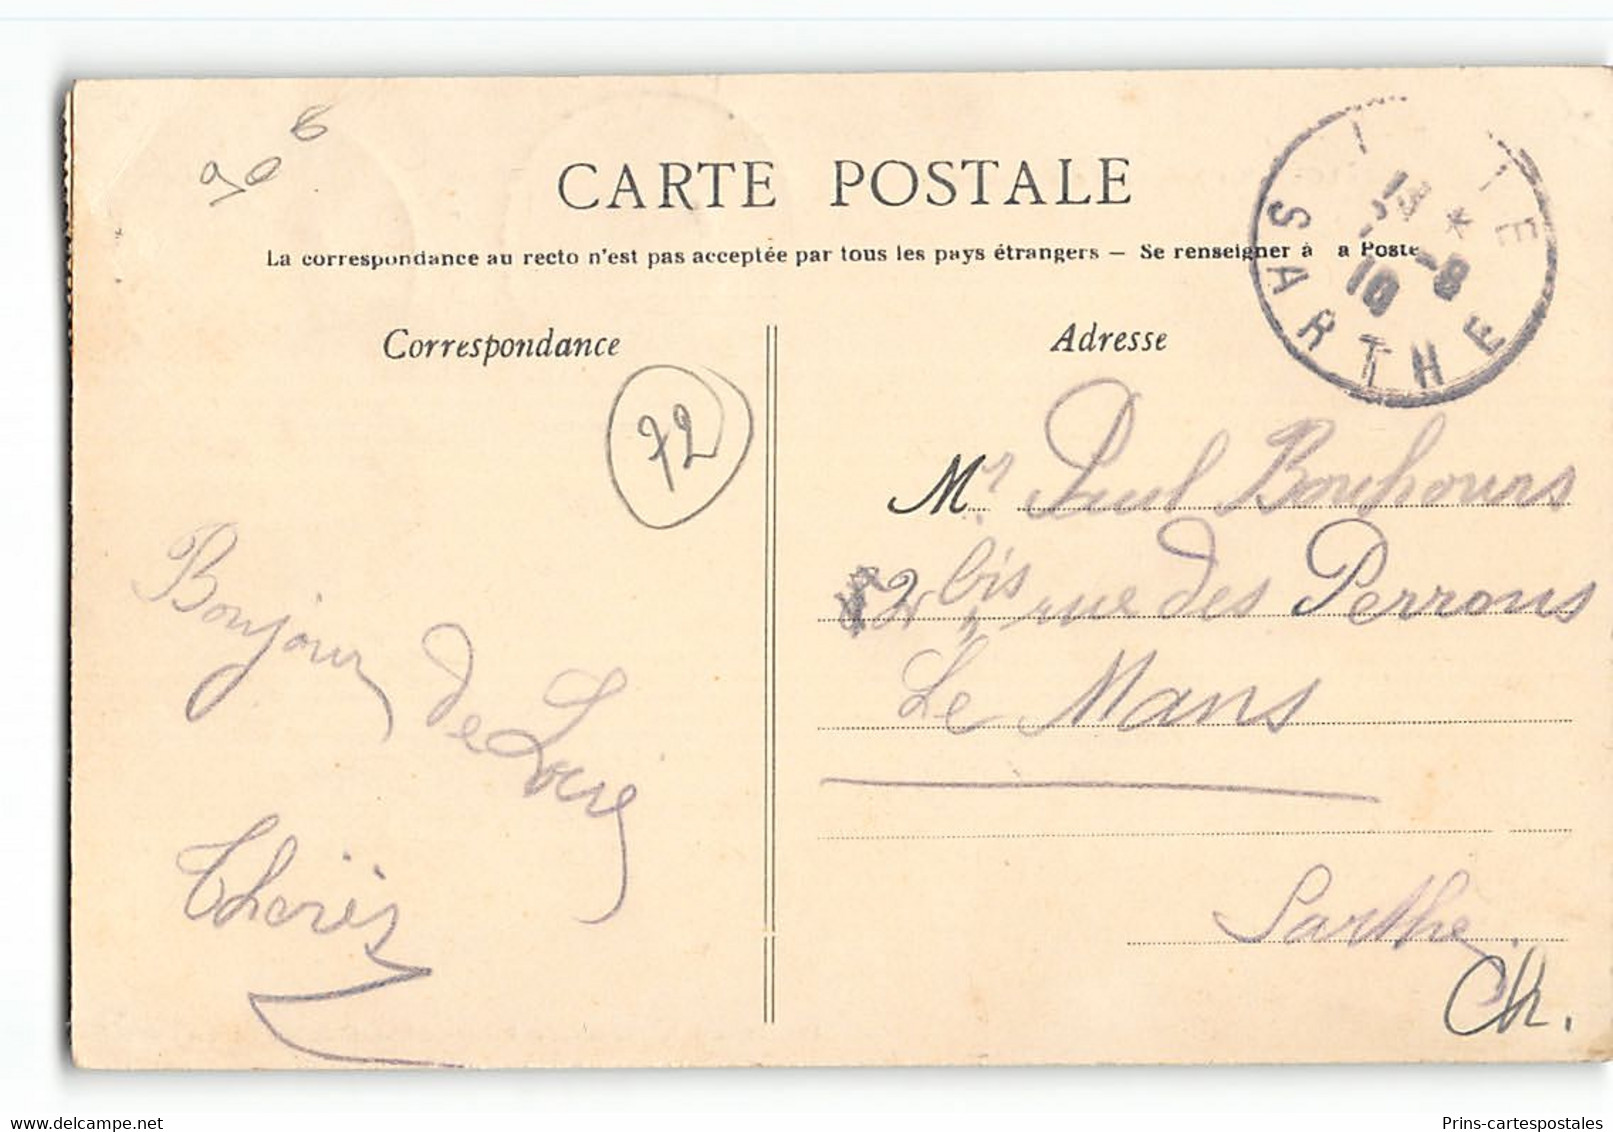 CARTE POSTALE
La correspondance au recto n'est pas acceptée par tous les pays étrangers — Se renseigner à a Poste
Correspondance
Adresse
72
SARTHE
13 * -8
10
Bonjour de
Thérès
Mr Paul Bouhours
2 bis rue des Perrons
Le Mans
Sarthe
Ch.
delcampe.net
Prins-cartespostales